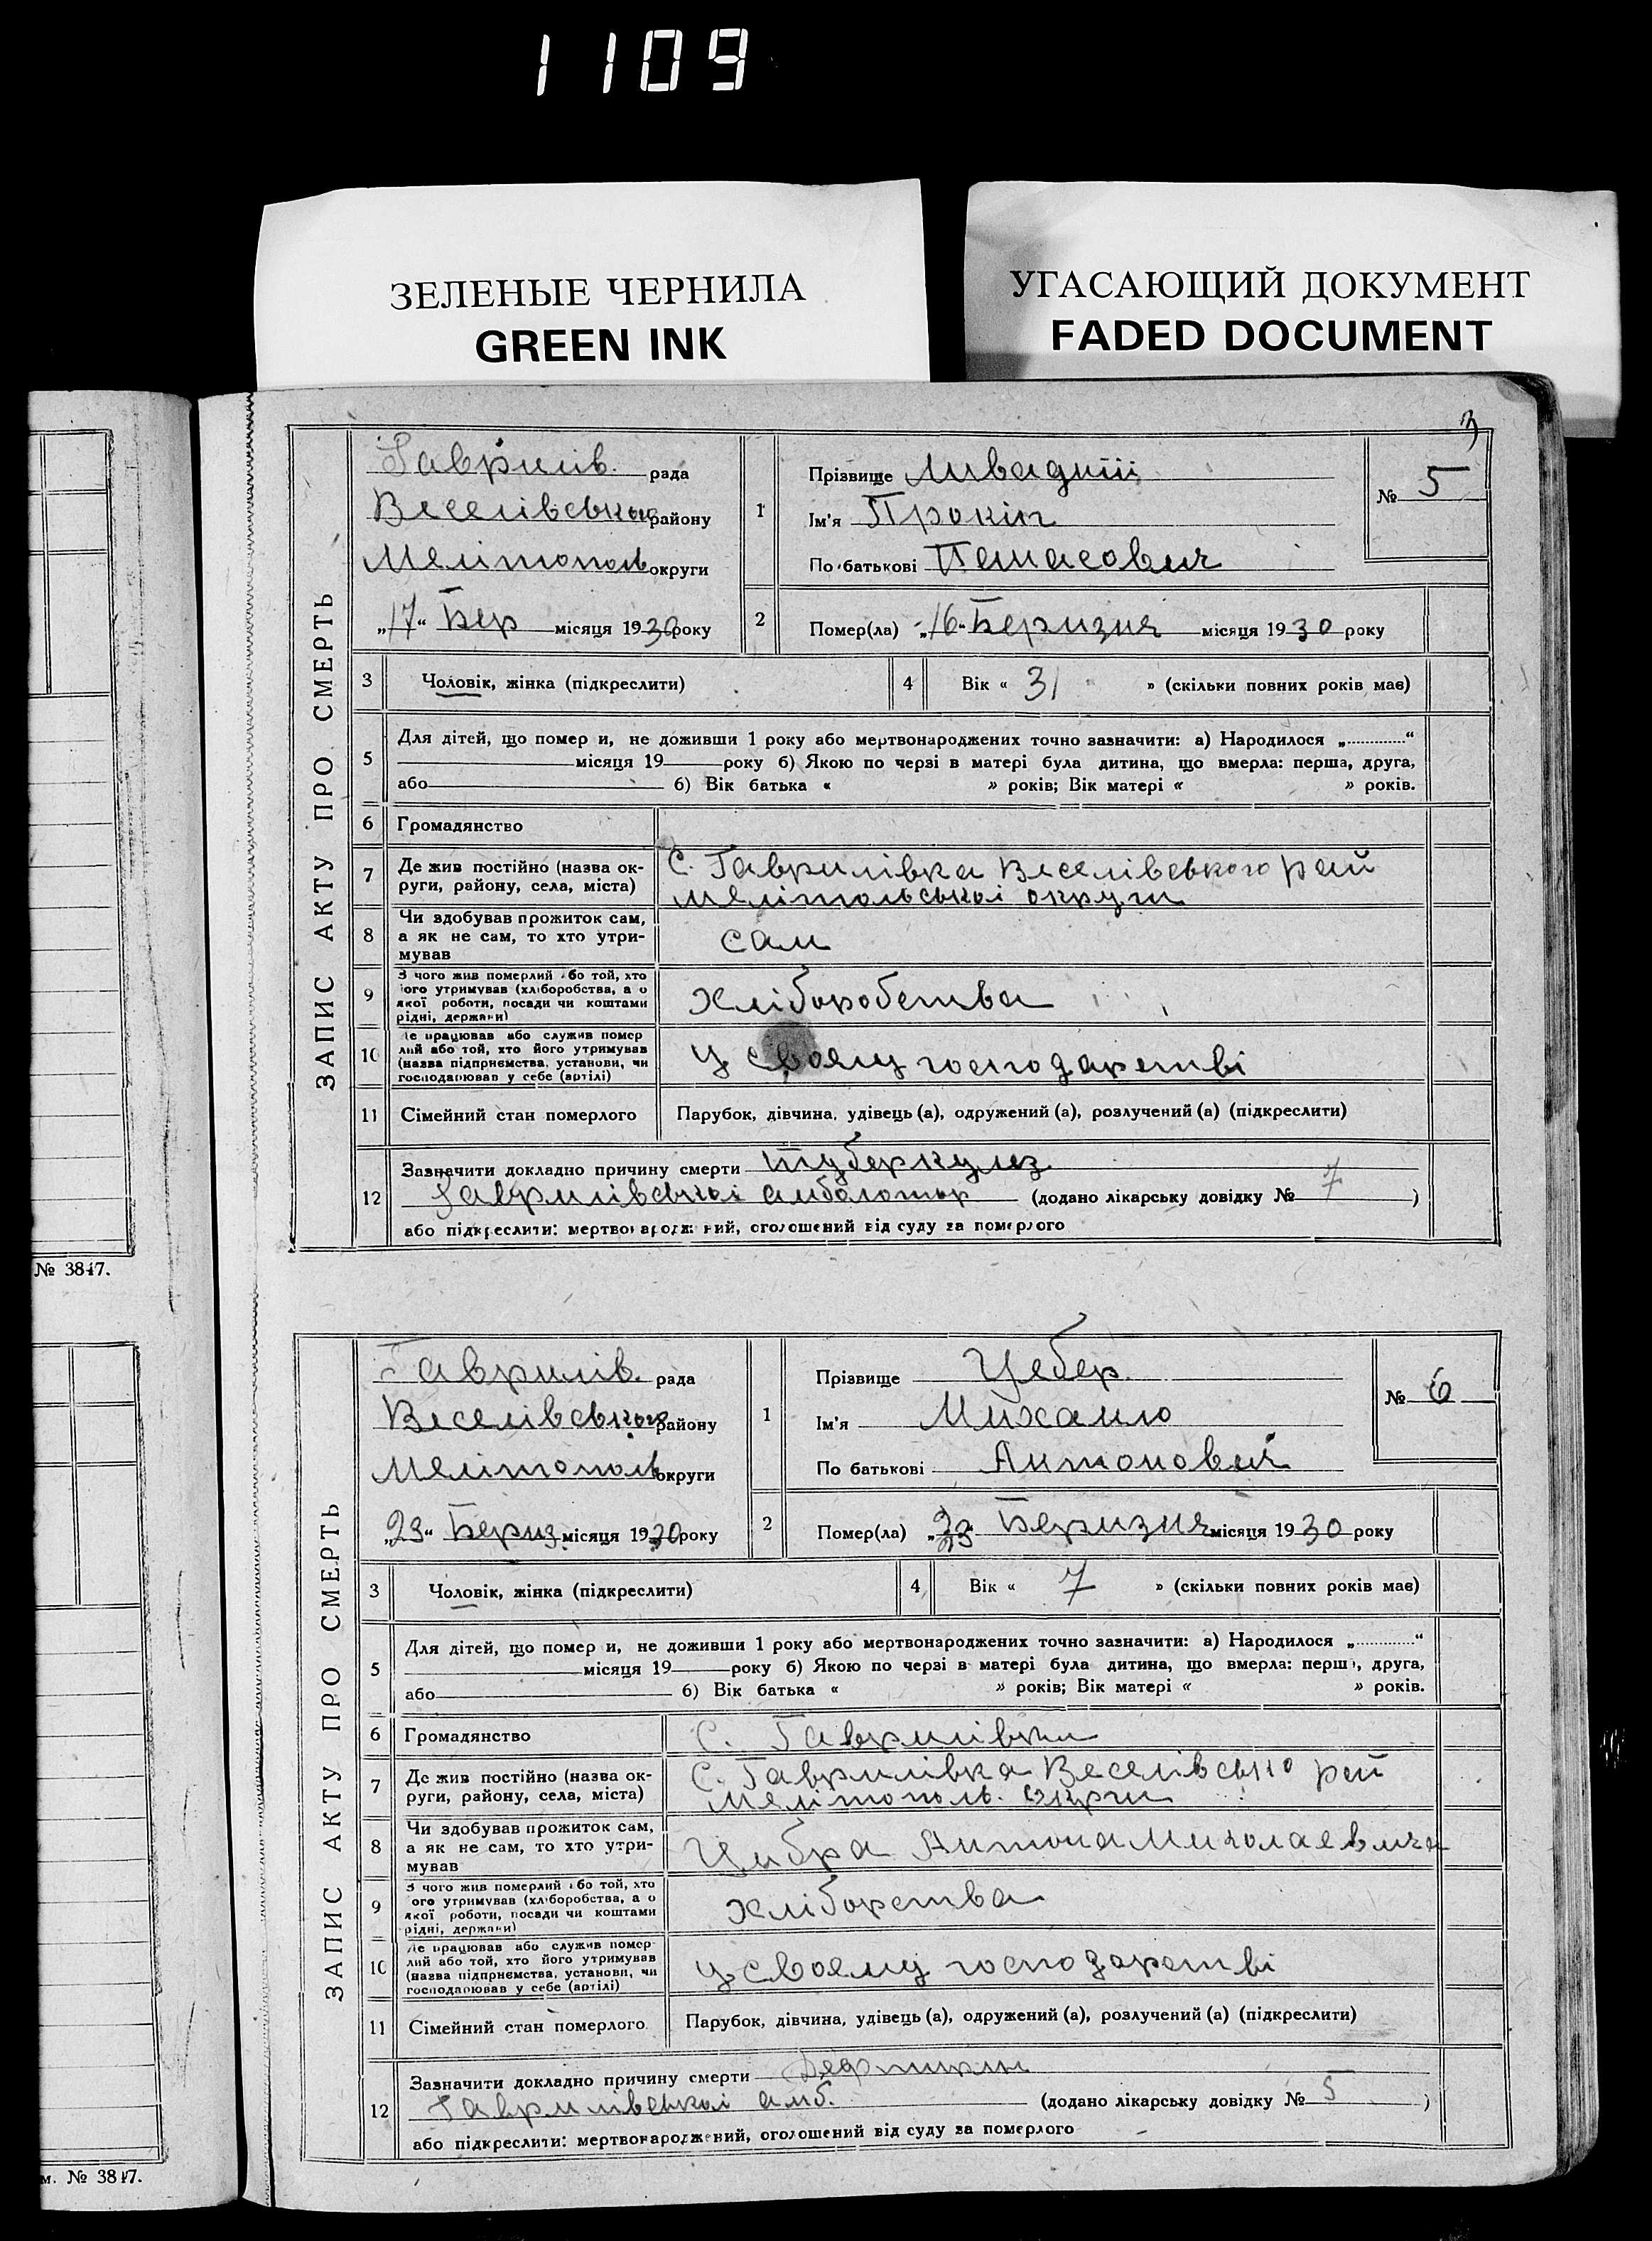 1109
ЗЕЛЕНЫЕ ЧЕРНИЛА
GREEN INK
УГАСАЮЩИЙ ДОКУМЕНТ
FADED DOCUMENT
3
№ 3847.
м. № 3847.
ЗАПИС АКТУ ПРО СМЕРТЬ
Гаврилів. рада
Веселівського району
Мелітополь округи
„17“ Бер місяця 1930 року
1
Прізвище
Ім'я Прокіп
По-батькові
№ 5
2 Помер(ла) „16“ Беризня місяця 1930 року
3 Чоловік, жінка (підкреслити)
4 Вік « 31 » (скільки повних років має)
5 Для дітей, що помер и, не доживши 1 року або мертвонароджених точно зазначити: а) Народилося „ “
місяця 19 року б) Якою по черзі в матері була дитина, що вмерла: перша, друга,
або б) Вік батька « » років; Вік матері « » років.
6 Громадянство
7 Де жив постійно (назва ок-
руги, району, села, міста)
С. Гаврилівка Веселівського рай
Мелітольської округи
8 Чи здобував прожиток сам,
а як не сам, то хто утри-
мував
сам
9 З чого жив померлий бо той, хто
ого утримував (хліборобства, а о
якої роботи, посади чи коштами
рідні, держави)
Хліборобства
10 Де працював або служив помер
лий або той, хто його утримував
(назва підприємства, установи, чи
господарював у себе (артілі)
у своему господарстві
11 Сімейний стан померлого
Парубок, дівчина, удівець (а), одружений (а), розлучений (а) (підкреслити)
12 Зазначити докладно причину смерти туберкульз
Гаврилівської амболотор (додано лікарську довідку № 7 )
або підкреслити: мертвонароджений, оголошений від суду за померлого
ЗАПИС АКТУ ПРО СМЕРТЬ
Гаврилів. рада
Веселівського району
Мелітополь округи
„23“ Бериз місяця 1930 року
1
Прізвище Цебер
Ім'я Михайло
По батькові Антонович
№ 6
2 Помер(ла) „23“ Беризня місяця 1930 року
3 Чоловік, жінка (підкреслити)
4 Вік « 7 » (скільки повних років має)
5 Для дітей, що помер и, не доживши 1 року або мертвонароджених точно зазначити: а) Народилося „ “
місяця 19 року б) Якою по черзі в матері була дитина, що вмерла: перш , друга,
або б) Вік батька « » років; Вік матері « » років.
6 Громадянство
С. Гаврилівки
7 Де жив постійно (назва ок-
руги, району, села, міста)
С. Гаврилівка Веселівсько рай
Мелітополь. округи
8 Чи здобував прожиток сам,
а як не сам, то хто утри-
мував
Цибра Антона Миколаевича
9 З чого жив померлий бо той, хто
ого утримував (хліборобства, а о
якої роботи, посади чи коштами
рідні, держави)
Хліборства
10 Де працював або служив помер-
лий або той, хто його утримував
(назва підприємства, установи, чи
господарював у себе (артілі)
у своему господарстві
11 Сімейний стан померлого
Парубок, дівчина, удівець (а), одружений (а), розлучений (а) (підкреслити)
12 Зазначити докладно причину смерти
Гаврилівської амб. (додано лікарську довідку № 5 )
або підкреслити: мертвонароджений, оголошений від суду за померлого